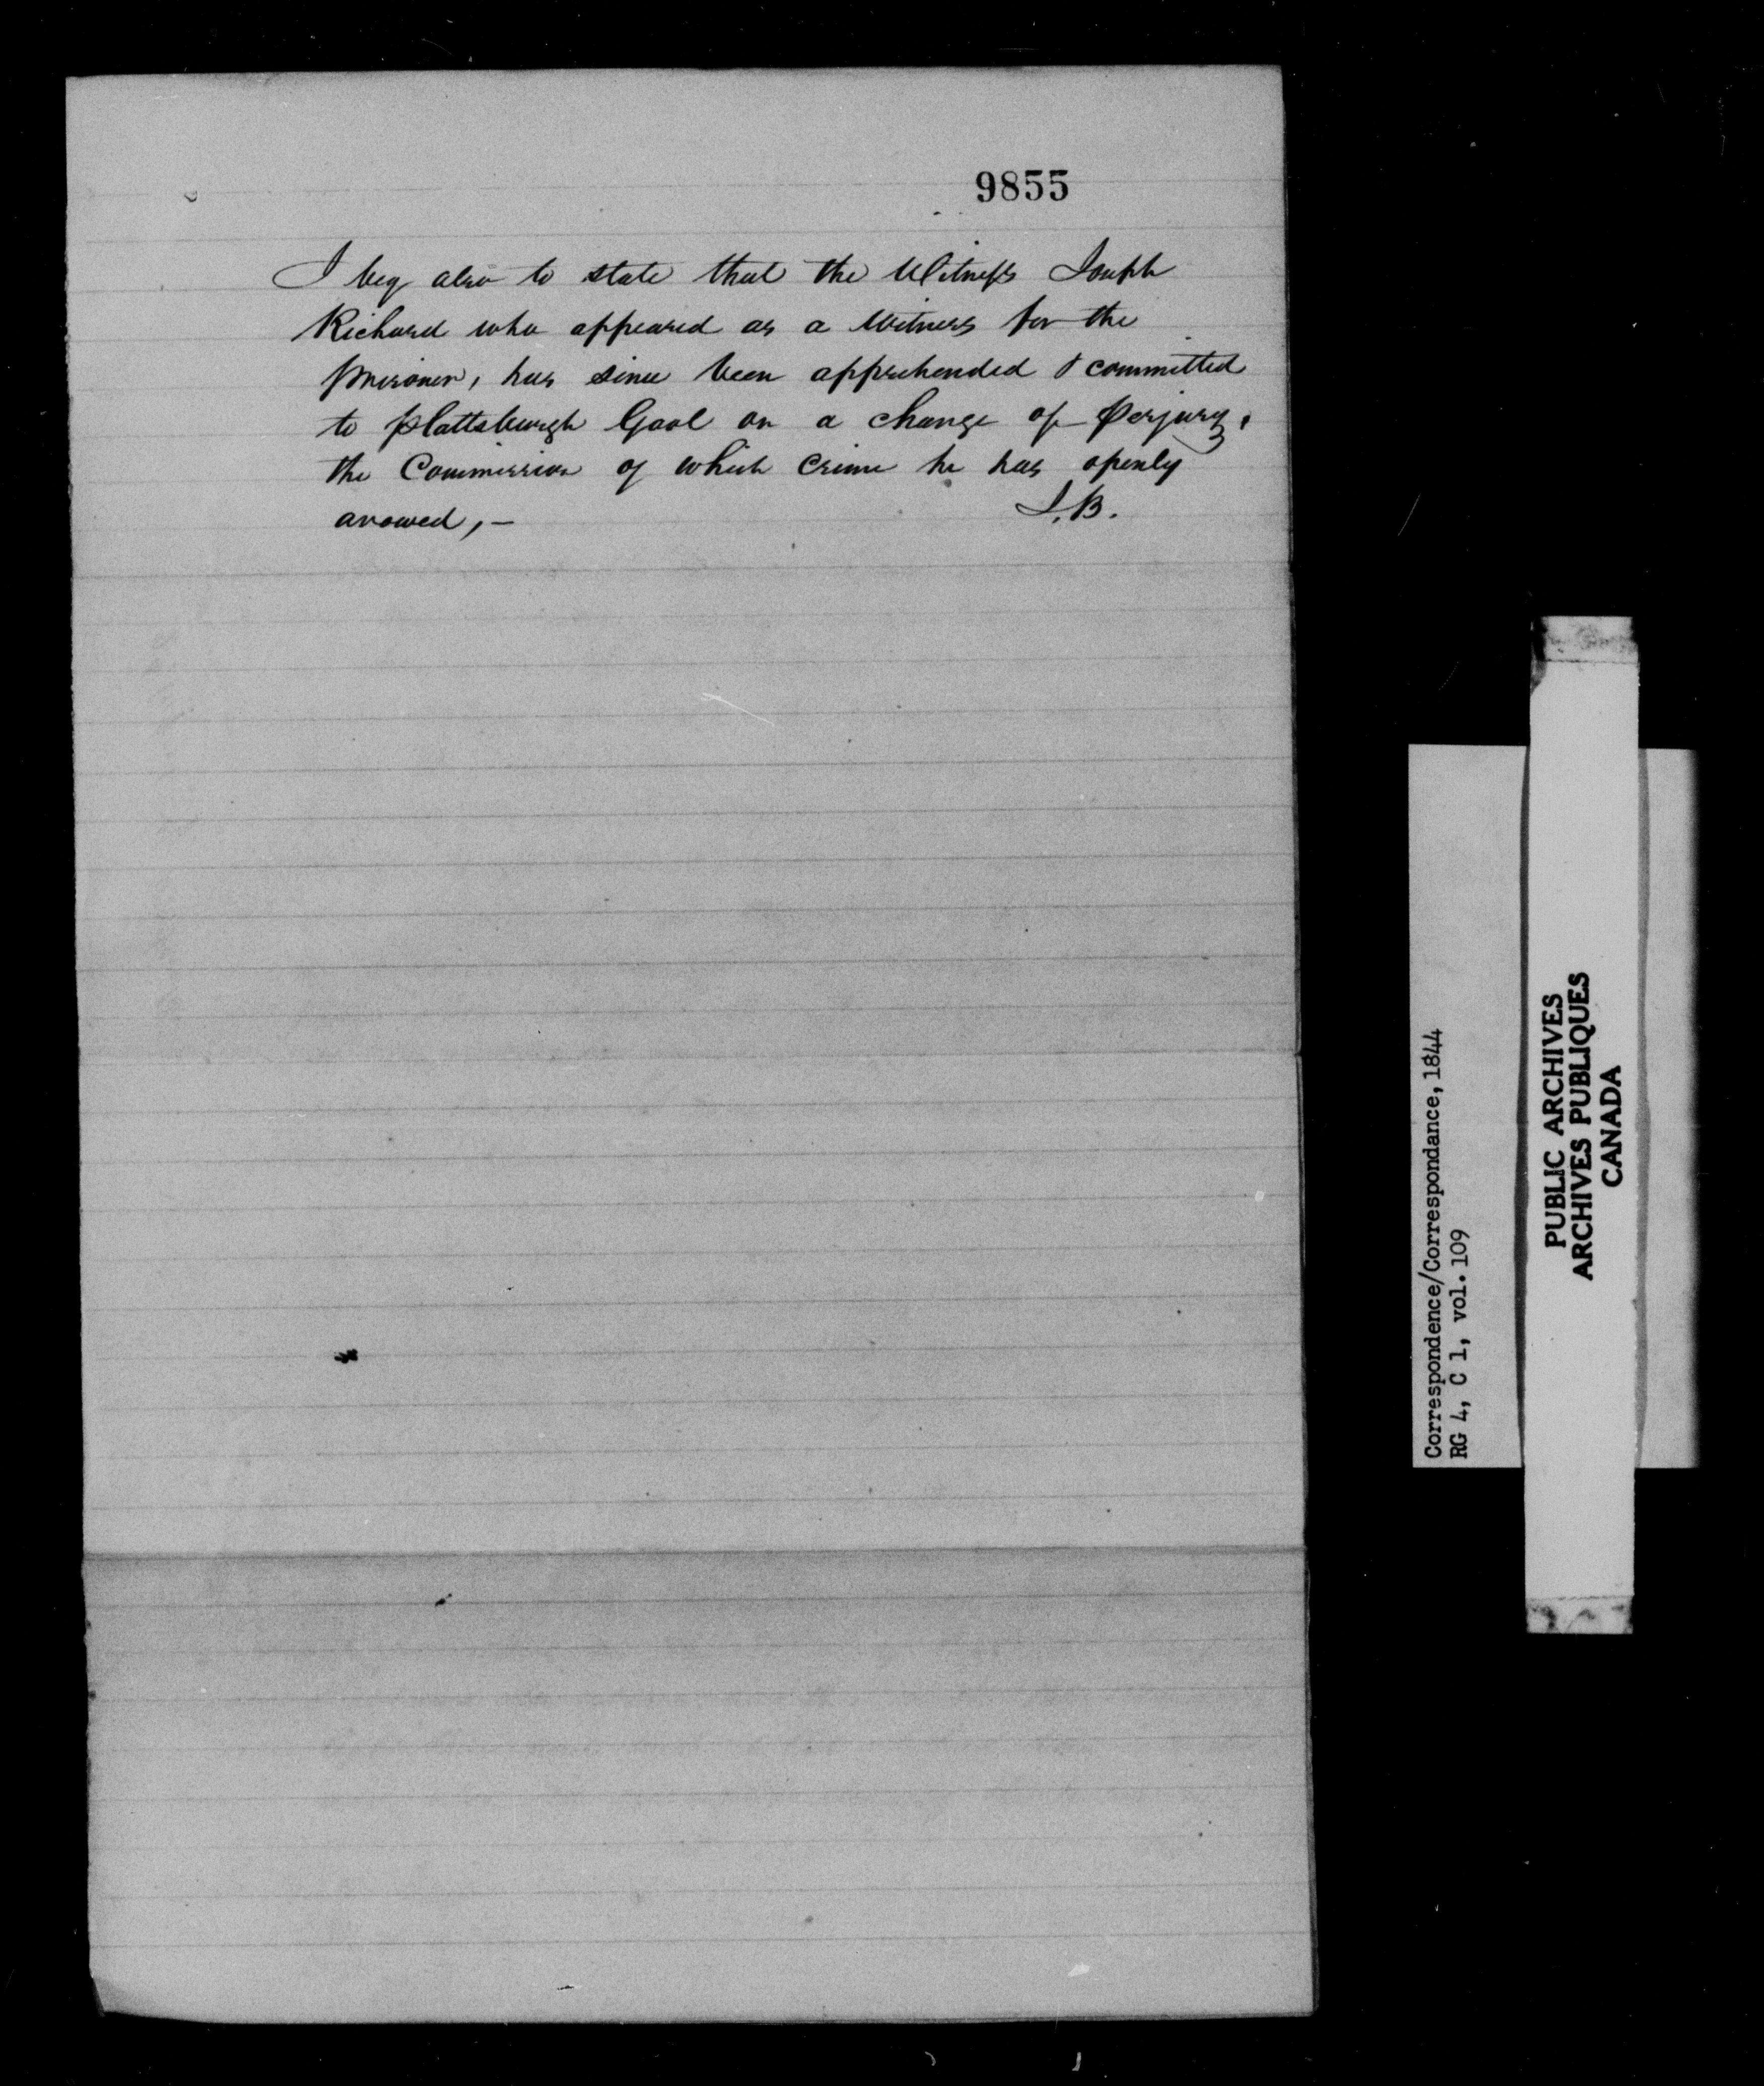 9855
I beg also to state that the Witness Joseph
Richard who appeared as a Witness for the
prisoner, has since been apprehended & committed
to Plattsburgh Gaol on a charge of Perjury,
the Commission of which Crime he has openly
avowed, —
J.B.
Correspondence/Correspondance, 1844
RG 4, C 1, vol. 109
PUBLIC ARCHIVES
ARCHIVES PUBLIQUES
CANADA